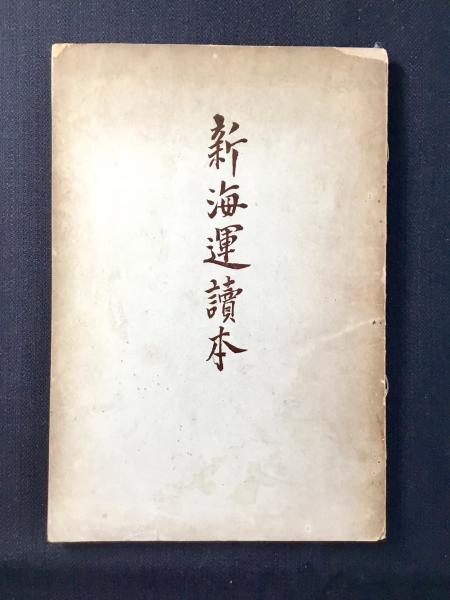 新海運讀本